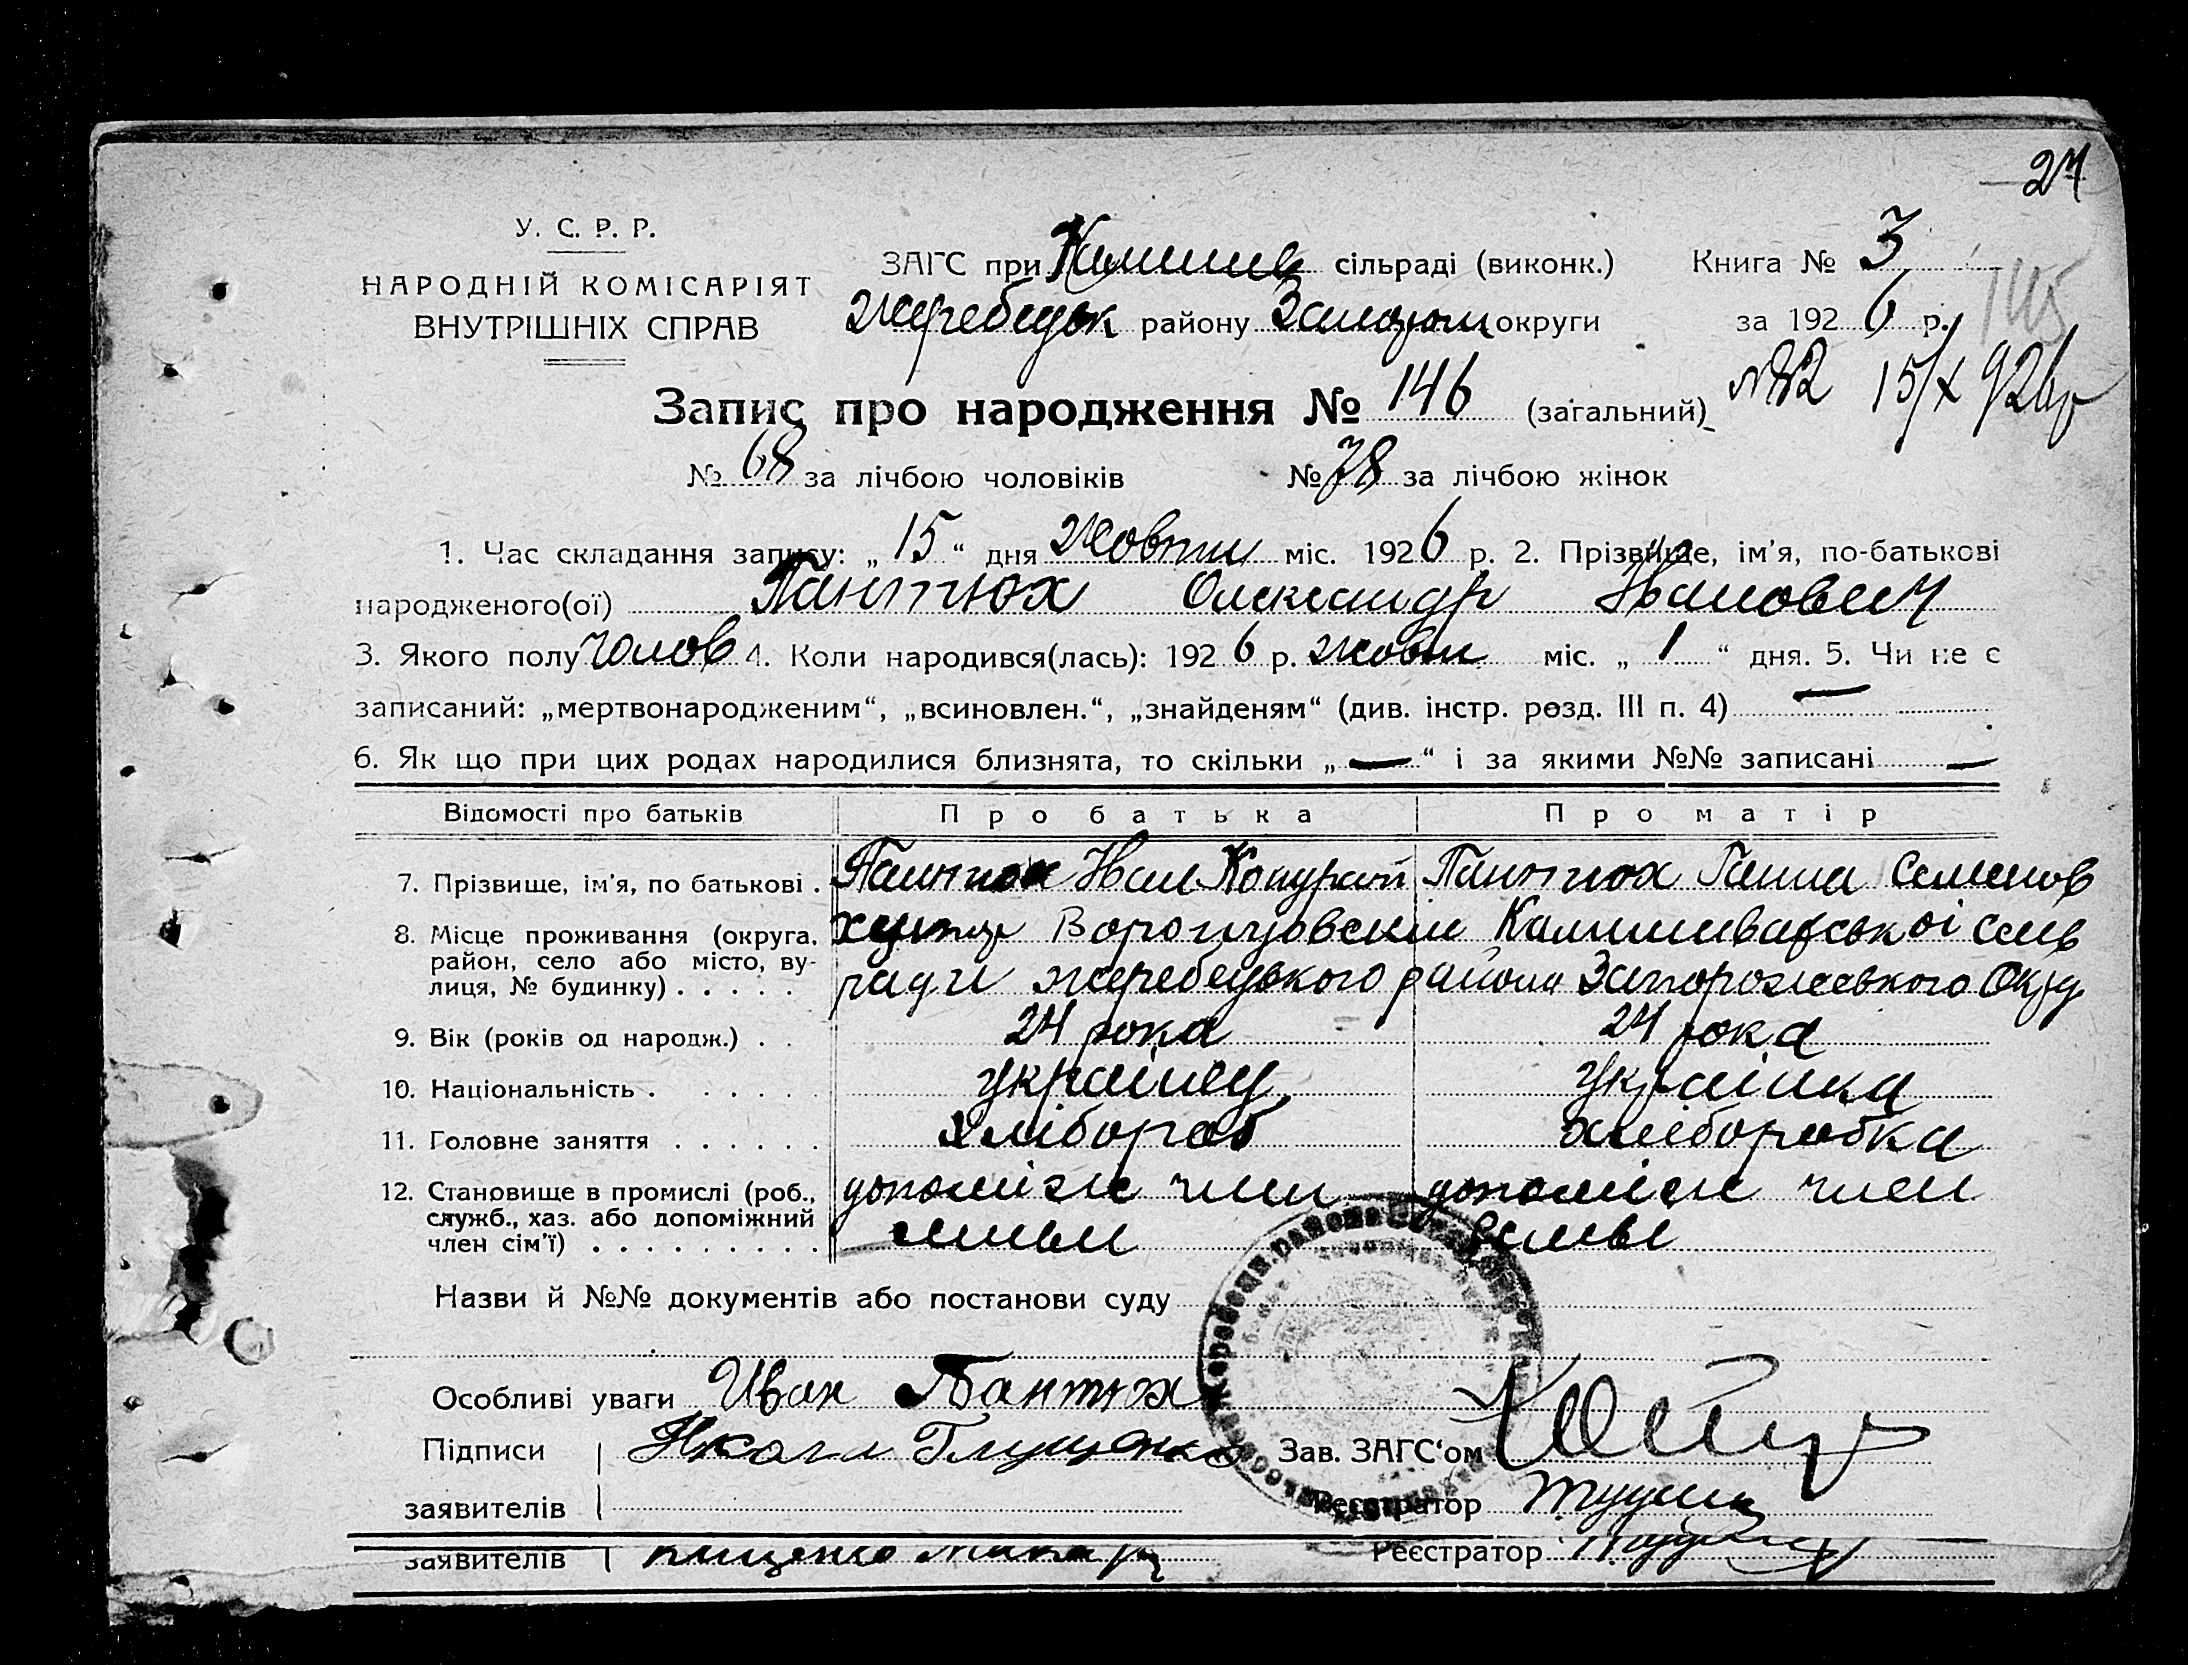 24
У. С. Р. Р.
НАРОДНІЙ КОМІСАРІЯТ
ВНУТРІШНІХ СПРАВ
ЗАГС при сільраді (виконк.)
Жеребецьк району Запоріж округи
Книга № 3
за 1926 р.
145
Запис про народження № 146 (загальний)
15/X 926 р
№ 68 за лічбою чоловіків № 78 за лічбою жінок
1. Час складання запису: „ 15 “ дня Жовтн міс. 1926 р. 2. Прізвище, ім'я, по-батькові
народженого(ої) Пантюх Олександр Иванович
3. Якого полу чолов 4. Коли народився(лась): 1926 р. жовтн міс. „ 1 “ дня. 5. Чи не є
записаний: „мертвонародженим“, „всиновлен.“, „знайденям“ (див. інстр. розд. III п. 4) —
6. Як що при цих родах народилися близнята, то скільки „ — “ і за якими №№ записані —
Відомості про батьків Про батька Про матір
7. Прізвище, ім'я, по батькові . Пантюх Иван Кондрат Пантюх Ганна Семенов
8. Місце проживання (округа, район, село або місто, ву-лиця, № будинку) . . . . .
ради Жеребецького района Запорожського Округ
9. Вік (років од народж.) . . 24 рока 24 рока
10. Національність . . . . . українец українка
11. Головне заняття . . . . . . хлібороб хлеборобка
12. Становище в промислі (роб., служб., хаз. або допоміжний член сім'ї) . . . . . . . . . допоміжн член семьи допоміжн член семьи
Назви й №№ документів або постанови суду
Особливі уваги Иван Пантюх
Підписи Глущенко Зав. ЗАГС'ом
заявителів Реєстратор
заявителів Реєстратор